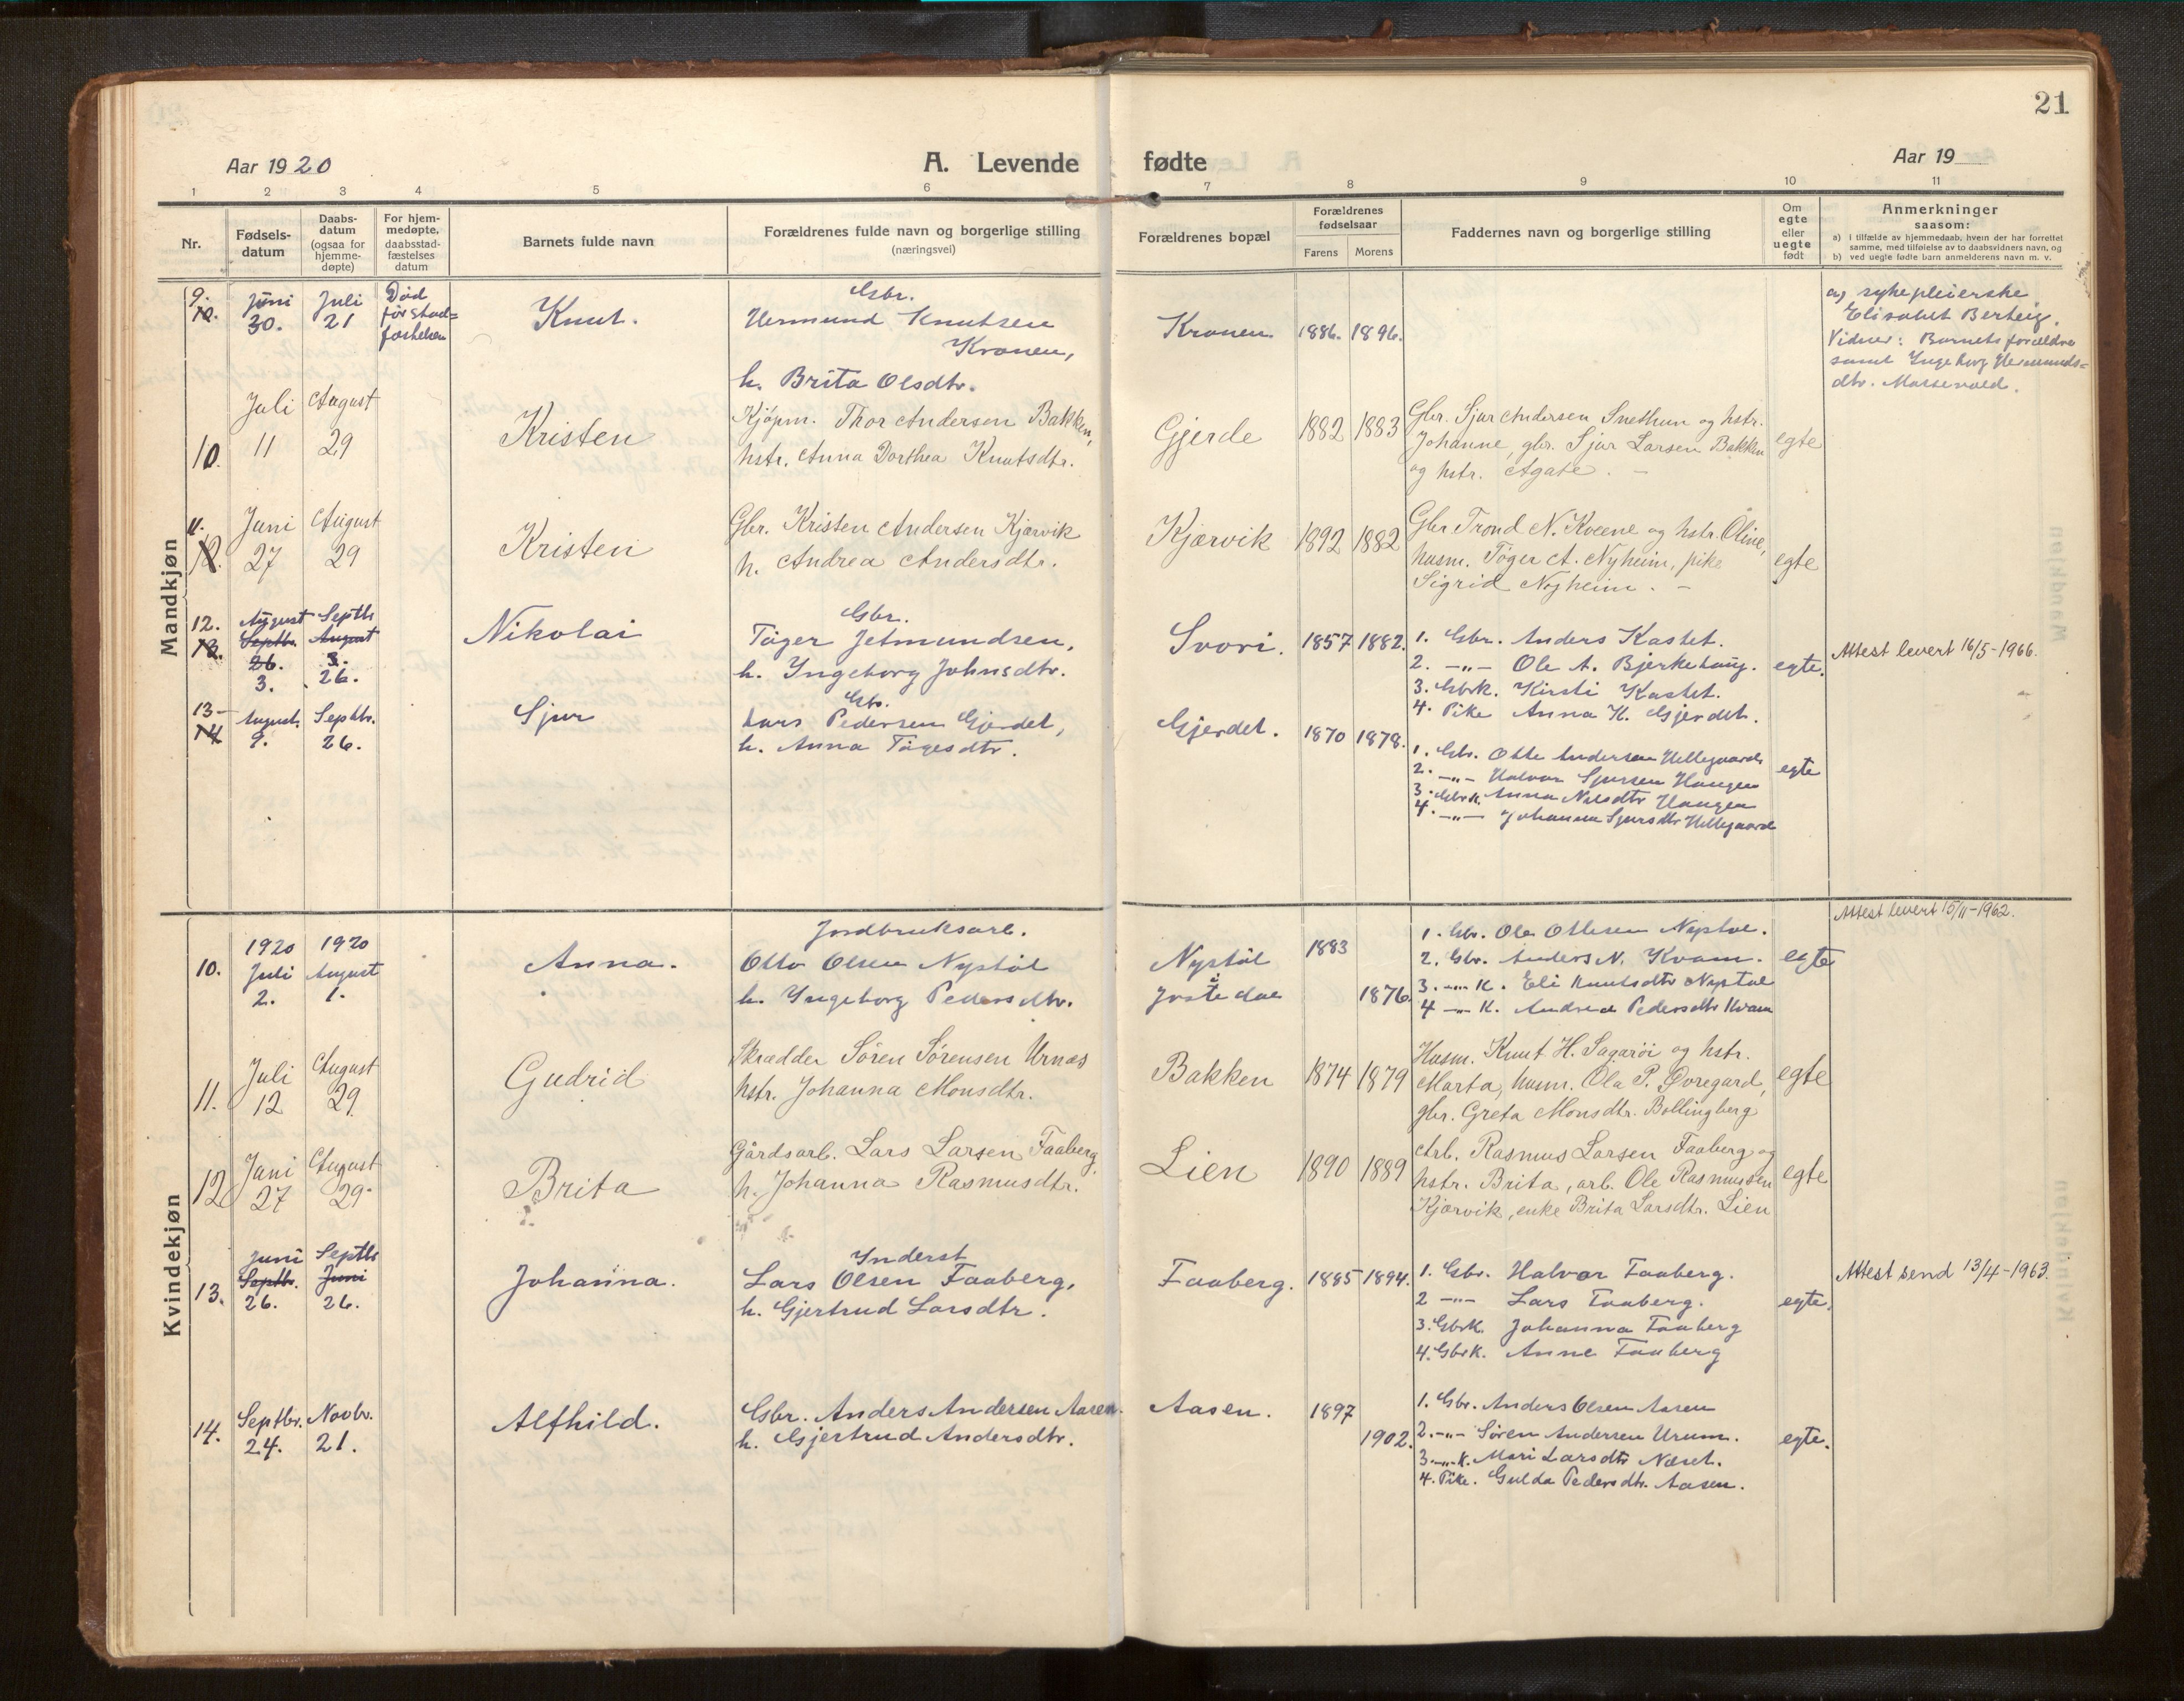 21
Aar 1920
A. Levende fødte
Aar 19
1 2 3 4 5 6 7 8 9 10 11
Nr.
Fødsels-
datum
Daabs-
datum
(ogsaa for
hjemme-
døpte)
For hjem-
medøpte,
daabsstad-
fæstelses
datum
Barnets fulde navn
Forældrenes fulde navn og borgerlige stilling
(næringsvei)
Forældrenes bopæl
Forældrenes
fødselsaar
Farens Morens
Faddernes navn og borgerlige stilling
Om
egte
eller
uegte
født
Anmerkninger
saasom:
a) i tilfælde av hjemmedaab, hvem der har forrettet
samme, med tilføielse av to daabsvidners navn, og
b) ved uegte fødte barn anmelderens navn m. v.
Mandkjøn
9.
10.
Juni
30.
Juli
21
Død
før stad-
fæstelsen
Knut.
Gbr.
Hermund Knutsen
Kronen,
h. Brita Olsdtr.
Kronen
1886. 1896.
a) sykepleierske
Elisabet Berteig.
Vidner: Barnets forældre
samt Ingeborg Hermunds-
dtr. Massevold.
10.
Juli
11
August
29
Kristen
Kjøpm. Thor Andersen Bakken,
hstr. Anna Dorthea Knutsdtr.
Gjerde
1882 1883
Gbr. Sjur Andersen Snethun og hstr.
Johanne, gbr. Sjur Larsen Bakken
og hstr. Agate. –
egte
11.
12.
Juni
27
August
29
Kristen
Gbr. Kristen Andersen Kjærvik
h. Andrea Andersdtr.
Kjærvik
1892 1882
Gbr Trond N. Kveene og hstr. Oline,
husm. Tøger A. Nyheim, pike
Sigrid Nyheim. –
egte
12.
13.
August
Septbr.
26.
3.
Septb
August
3.
26.
Nikolai
Gbr.
Tøger Jetmundsen,
h. Ingeborg Johnsdtr.
Svori.
1857 1882.
1. Gbr. Anders Kastet.
2. –"– Ole A. Bjerkehaug.
3. Gbrk. Kirsti Kastet.
4. Pike Anna K. Gjerdet.
egte.
Attest levert 16/5-1966.
13–
14
August.
9.
Septbr.
26.
Sjur
Gbr.
Lars Pedersen Gjerdet,
h. Anna Tøgesdtr.
Gjerdet.
1870 1878.
1. Gbr. Otte Andersen Hellegaard
2. –"– Halvor Sjursen Haugen
3. Gbrk. Anna Nilsdtr Haugen
4. –"– Johanna Sjursdtr Hellegaard
egte
Kvindekjøn
10.
1920
Juli
2.
1920
August
1.
Anna.
Jordbruksarb.
Otto Olsen Nystøl
h. Ingeborg Pedersdtr.
Nystøl
i
Jostedal
1883
1876.
1. Gbr. Ole Ottesen Nystøl.
2. Gbr. Anders N. Kvam.
3. –"– K. Eli Knutsdtr Nystøl
4 –"– K. Andrea Pedersdtr Kvam
egte
Attest levert 15/11-1962.
11.
Juli
12
August
29.
Gudrid
Skrædder Søren Sørensen Urnæs
hstr. Johanna Monsdtr.
Bakken
1874 1879
Husm. Knut H. Sagarøi og hstr.
Marta, husm. Ola P. Øvregard,
gbr. Greta Monsdtr. Bollingberg
egte
12
Juni
27
August
29.
Brita
Gårdsarb. Lars Larsen Faaberg,
h. Johanna Rasmusdtr.
Lien
1890 1889
Arb. Rasmus Larsen Faaberg og
hstr. Brita, arb. Ole Rasmussen
Kjærvik, enke Brita Larsdtr. Lien
egte
13.
Juni
Septbr.
26.
Septb
Juni
26.
Johanna.
Inderst
Lars Olsen Faaberg,
h. Gjertrud Larsdtr.
Faaberg.
1885 1894.
1. Gbr. Halvor Faaberg.
2 –"– Lars Faaberg.
3. Gbrk. Johanna Faaberg
4. Gbrk. Anne Faaberg
egte.
Attest send 13/4-1963.
14.
Septbr.
24.
Novbr.
21.
Alfhild.
Gbr. Anders Andersen Aasen.
h. Gjertrud Andersdtr.
Aasen.
1897
1902.
1. Gbr. Anders Olsen Aasen
2. –"– Søren Andersen Urum.
3. –"– K. Mari Larsdtr Næset.
4. Pike. Gulda Pedersdtr. Aasen.
egte.